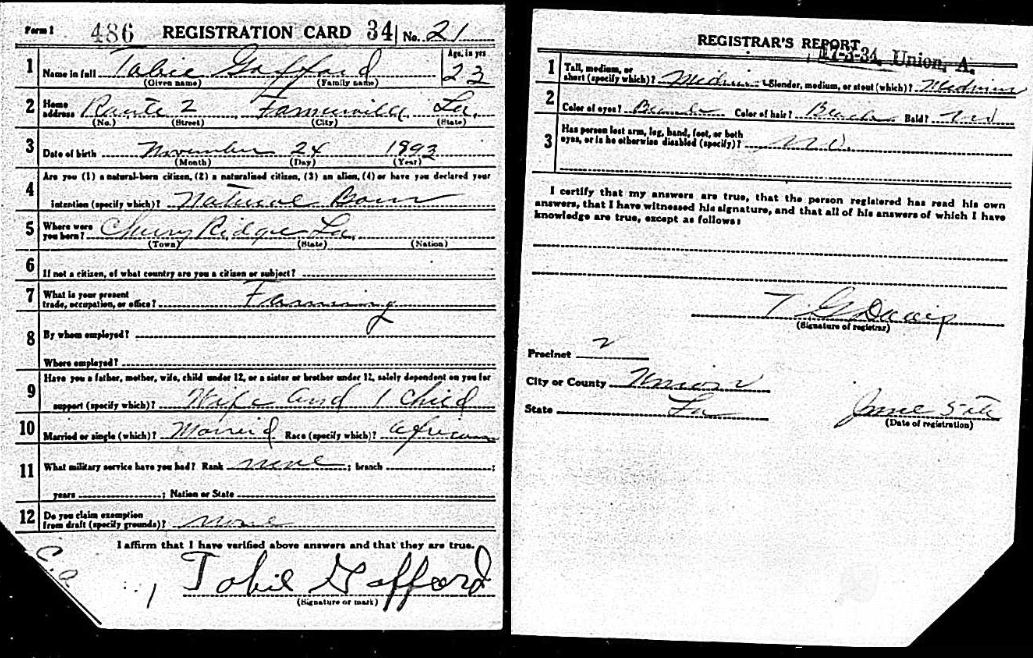 Form 1 486 REGISTRATION CARD 34 No. 21
1 Name in full Tobie Gafford Age, in yrs 23
(Given name) (Family name)
2 Home address Route 2 Farmerville La.
(No.) (Street) (City) (State)
3 Date of birth November 24 1893
(Month) (Day) (Year)
4 Are you (1) a natural-born citizen, (2) a naturalized citizen, (3) an alien, (4) or have you declared your
intention (specify which)? Natural Born
5 Where were you born? Cherry Ridge La
(Town) (State) (Nation)
6 If not a citizen, of what country are you a citizen or subject?
7 What is your present trade, occupation, or office? Farming
8 By whom employed?
Where employed?
9 Have you a father, mother, wife, child under 12, or a sister or brother under 12, solely dependent on you for
support (specify which)? Wife and 1 child
10 Married or single (which)? Married Race (specify which)? African
11 What military service have you had? Rank none ; branch ;
years ; Nation or State
12 Do you claim exemption from draft (specify grounds)? None
I affirm that I have verified above answers and that they are true.
Tobie Gafford
(Signature or mark)
REGISTRAR'S REPORT
17-3-34, Union, A.
1 Tall, medium, or short (specify which)? Medium Slender, medium, or stout (which)? Medium
2 Color of eyes? Color of hair? Black Bald? No
3 Has person lost arm, leg, hand, foot, or both
eyes, or is he otherwise disabled (specify)? No.
I certify that my answers are true, that the person registered has read his own
answers, that I have witnessed his signature, and that all of his answers of which I have
knowledge are true, except as follows:
T G Davis
(Signature of registrar)
Precinct 2
City or County Union
State La June 5th
(Date of registration)